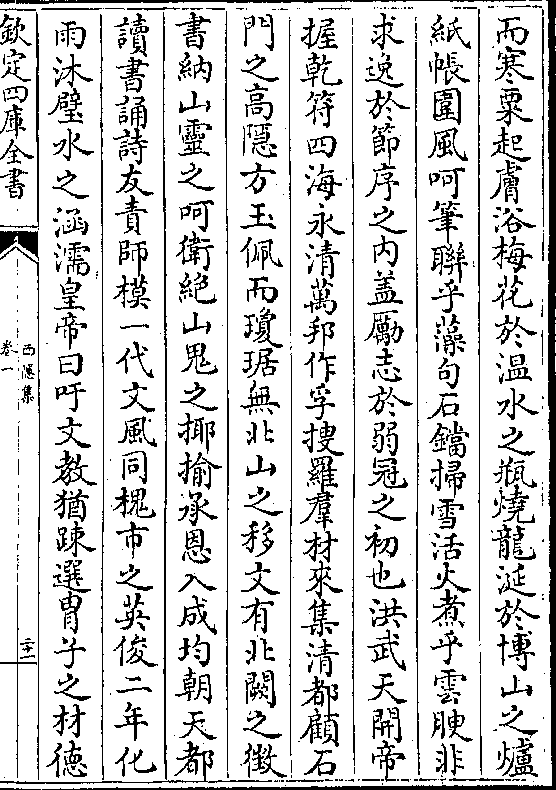 而寒粟起膚浴梅花於温水之瓶燒龍涎於博山之爐
紙帳圍風呵筆聯乎藻句石鐺掃雪活火煮乎雲腴非
求逸於節序之内盖勵志於弱冠之初也洪武天開帝
握乾符四海永清萬邦作孚搜羅羣材來集清都顧石
門之高隱方玉佩而瓊琚無北山之移文有北闕之徴
書納山靈之呵衛絶山鬼之揶揄承恩入成均朝天都
讀書誦詩友責師模一代文風同槐市之英俊二年化
雨沐璧水之涵濡皇帝曰吁文教猶踈選胄子之材德
欽定四庫全書
西隱集
卷一
二十一